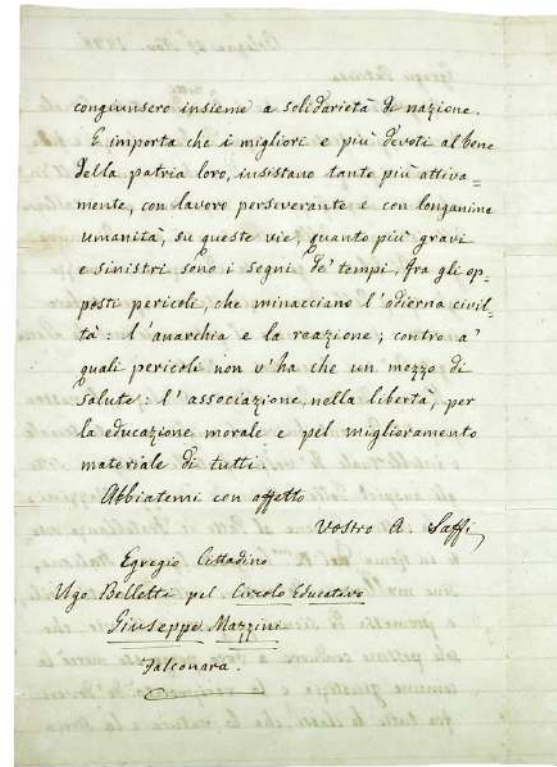 congiunsero insieme a solidarietà di nazione.
E importa che i migliori e più devoti al bene
della patria loro, insistano tanto più attiva=
mente, con lavoro perseverante e con longanime
umanità, su queste vie, quanto più gravi
e sinistri sono i segni de' tempi, fra gli op=
posti pericoli, che minacciano l'odierna civil=
tà: l'anarchia e la reazione; contro a'
quali pericoli non v'ha che un mezzo di
salute: l'associazione, nella libertà, per
la educazione morale e pel miglioramento
materiale di tutti.
Abbiatemi con affetto
Vostro A. Saffi
Egregio Cittadino
Ugo Belletti pel Circolo Educativo
Giuseppe Mazzini
Falconara.